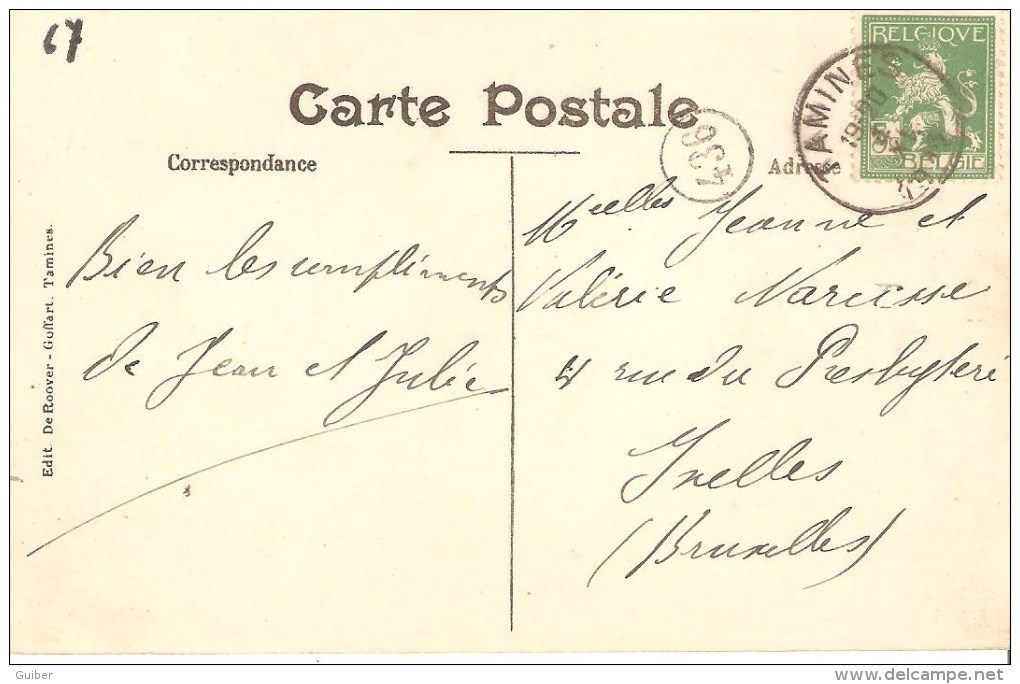 67
Carte Postale
Correspondance
Adresse
BELGIQVE
BELGIE
TAMINES
436
Edit. De Roover - Goffart. Tamines.
Bien les compliments
de Jean et Julie
Mcelles Jeanne et
Valérie Narcisse
4 rue du Presbytère
Ixelles
(Bruxelles)
Guiber
delcampe.net